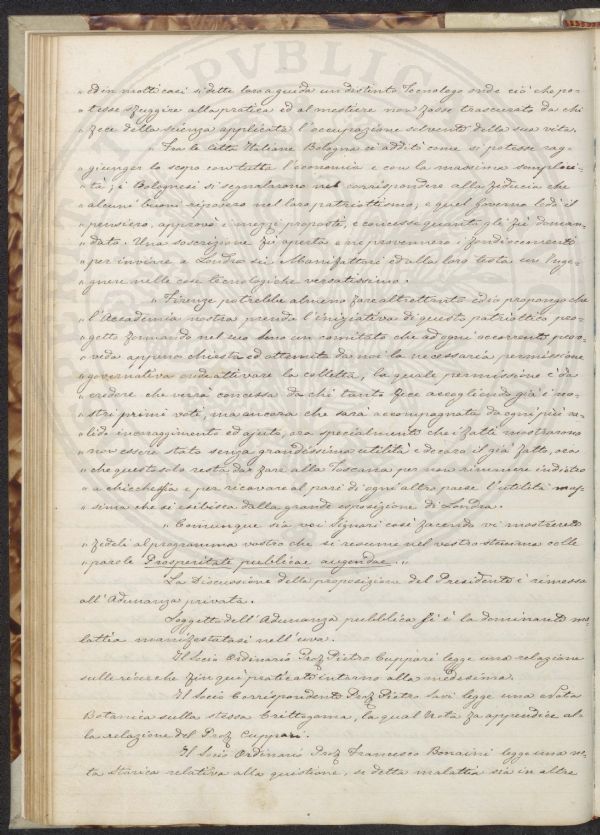 „ ed in molti casi si dette loro a guida un distinto Tecnologo onde ciò che po-
„ tesse sfuggire alla pratica ed al mestiere non fosse trascurato da chi
„ fece della scienza applicata l'occupazione solvente della sua vita.
„ Fra le Città Italiane Bologna ci additò come si potesse rag-
„ giunger lo scopo con tutta l'economia e con la massima semplici-
„ tà; i Bolognesi si segnalarono nel corrispondere alla fiducia che
„ alcuni buoni riposero nel loro patriottismo; e quel Governo lodò il
„ pensiero, approvò i mezzi proposti, e concesse quanto gli fù doman-
„ dato. Una soscrizione fù aperta e ne provennero i fondi occorrenti
„ per inviare a Londra sei Manifattori ed alla loro testa un Inge-
„ gnere nelle cose tecnologiche versatissimo.
„ Firenze potrebbe almeno fare altrettanto ed io propongo che
„ l'Accademia nostra prenda l'iniziativa di questo patriottico pro-
„ getto formando nel suo seno un comitato che ad ogni occorrente prov-
„ veda appena chiesta ed ottenuta da noi la necessaria permissione
„ governativa onde attivare la colletta, la quale permissione è da
„ credere che verrà concessa da chi tanto fece accogliendo già i no-
„ stri primi voti, ma ancora che sarà accompagnata da ogni più va-
„ lido incoraggimento ed ajuto, ora specialmente che i fatti mostrarono
„ non essere stato senza grandissima utilità e decoro il già fatto, ora
„ che questo solo resta da fare alla Toscana per non rimanere indietro
„ a chicchessia e per ricavare al pari di ogni altro paese l'utilità mas-
„ sima che si esibisca dalla grande esposizione di Londra.
„ Comunque sia voi Signori così facendo vi mostrerete
„ fedeli al programma vostro che si resume nel vostro stemma colle
„ parole Prosperitati publicae augendae. „
La Discussione della proposizione del Presidente è rimessa
all'Adunanza privata.
Soggetto dell'Adunanza pubblica si è la dominante ma-
lattia manifestatasi nell'uva.
Il Socio Ordinario Prof. Pietro Cuppari legge una relazione
sulle ricerche fin qui praticate intorno alla medesima.
Il Socio Corrispondente Prof. Pietro Savi legge una Nota
Botanica sulla stessa Crittogama, la qual Nota fa appendice al-
la relazione del Prof. Cuppari.
Il Socio Ordinario Prof. Francesco Bonaini legge una no-
ta storica relativa alla quistione, se detta malattia sia in altre